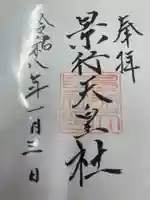 奉拝
景行天皇社
令和八年一月三日